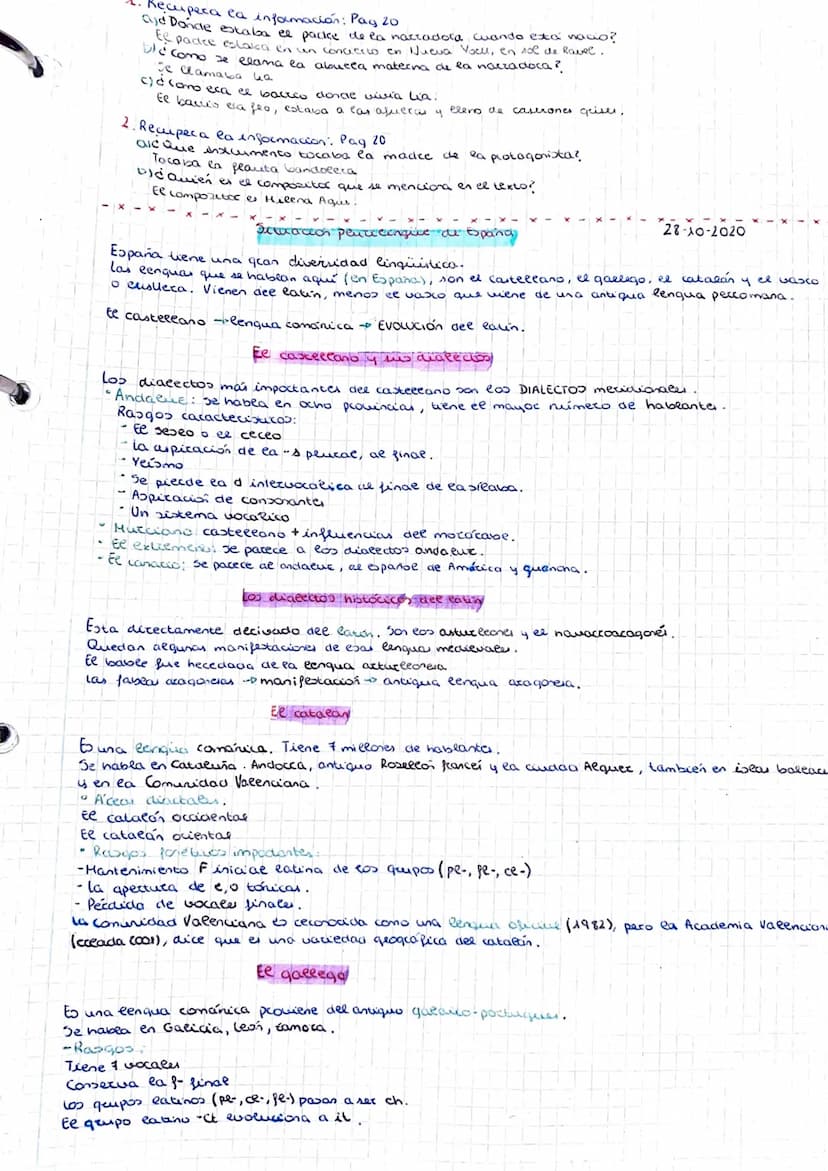 1. Recupera la información: Pag 20
a)¿Dónde estaba el padre de la narradora cuando esta nació?
El padre estaba en un concierto en Nueva York, en sol de Ravel.
b)¿Cómo se llama la abuela materna de la narradora?
Se llamaba Lia
c)¿Cómo era el barrio donde vivía Lia.
El barrio era feo, estaba a las afueras y lleno de caserones grises.
2. Recupera la información: Pag 20
a)¿Que instrumento tocaba la madre de la protagonista?
Tocaba la flauta
b)¿Quién es el compositor que se menciona en el texto?
El compositor es Milena Agus.
Situación plurilingüe de España 28-10-2020
España tiene una gran diversidad lingüística.
Las lenguas que se hablan aquí (en España), son el castellano, el gallego, el catalán y el vasco
o euskera. Vienen del latín, menos el vasco que viene de una antigua lengua perromana.
El castellano → lengua románica → EVOLUCIÓN del latín.
El castellano y sus dialectos
Los dialectos más importantes del castellano son los DIALECTOS meridionales.
• Andaluz: Se habla en ocho provincias, tiene el mayor número de hablantes.
Rasgos característicos:
- El seseo o el ceceo
- La aspiración de la -s plural, al final.
- Yeísmo
- Se pierde la d intervocálica al final de la sílaba.
- Aspiración de consonantes
- Un sistema vocálico
- Murciano: castellano + influencias del mozárabe.
- El extremeño: Se parece a los dialectos andaluz.
- El canario: Se parece al andaluz, al español de América y
Los dialectos históricos del latín
Esta directamente derivado del latín. Son los asturleonés y el navarroaragonés.
Quedan algunas manifestaciones de esas lenguas medievales.
El bable fue heredada de la lengua asturleonesa
Las fablas aragonesas → manifestación → antigua lengua aragonesa.
El catalán
Es una lengua románica. Tiene 7 millones de hablantes.
Se habla en Cataluña. Andorra, antiguo Rosellón francés y la ciudad Alguer, también en islas balear
y en la Comunidad Valenciana.
• Áreas dialectales.
El catalán occidental
El catalán oriental
• Rasgos fonéticos importantes:
-Mantenimiento F inicial latina de los grupos (pl-, fl-, cl-)
- La apertura de e,o tónicas.
- Pérdida de vocales finales.
La Comunidad Valenciana es reconocida como una lengua oficial (1982), pero la Academia Valencian
(creada 2001), dice que es una variedad geográfica del catalán.
El gallego
Es una lengua románica proviene del antiguo galaico-portugues.
Se habla en Galicia, León, Zamora.
-Rasgos:
Tiene 7 vocales
Conserva la f- final
Los grupos latinos (pl-, cl-, fl-) pasan a ser ch.
El grupo latino -ct evoluciona a it.